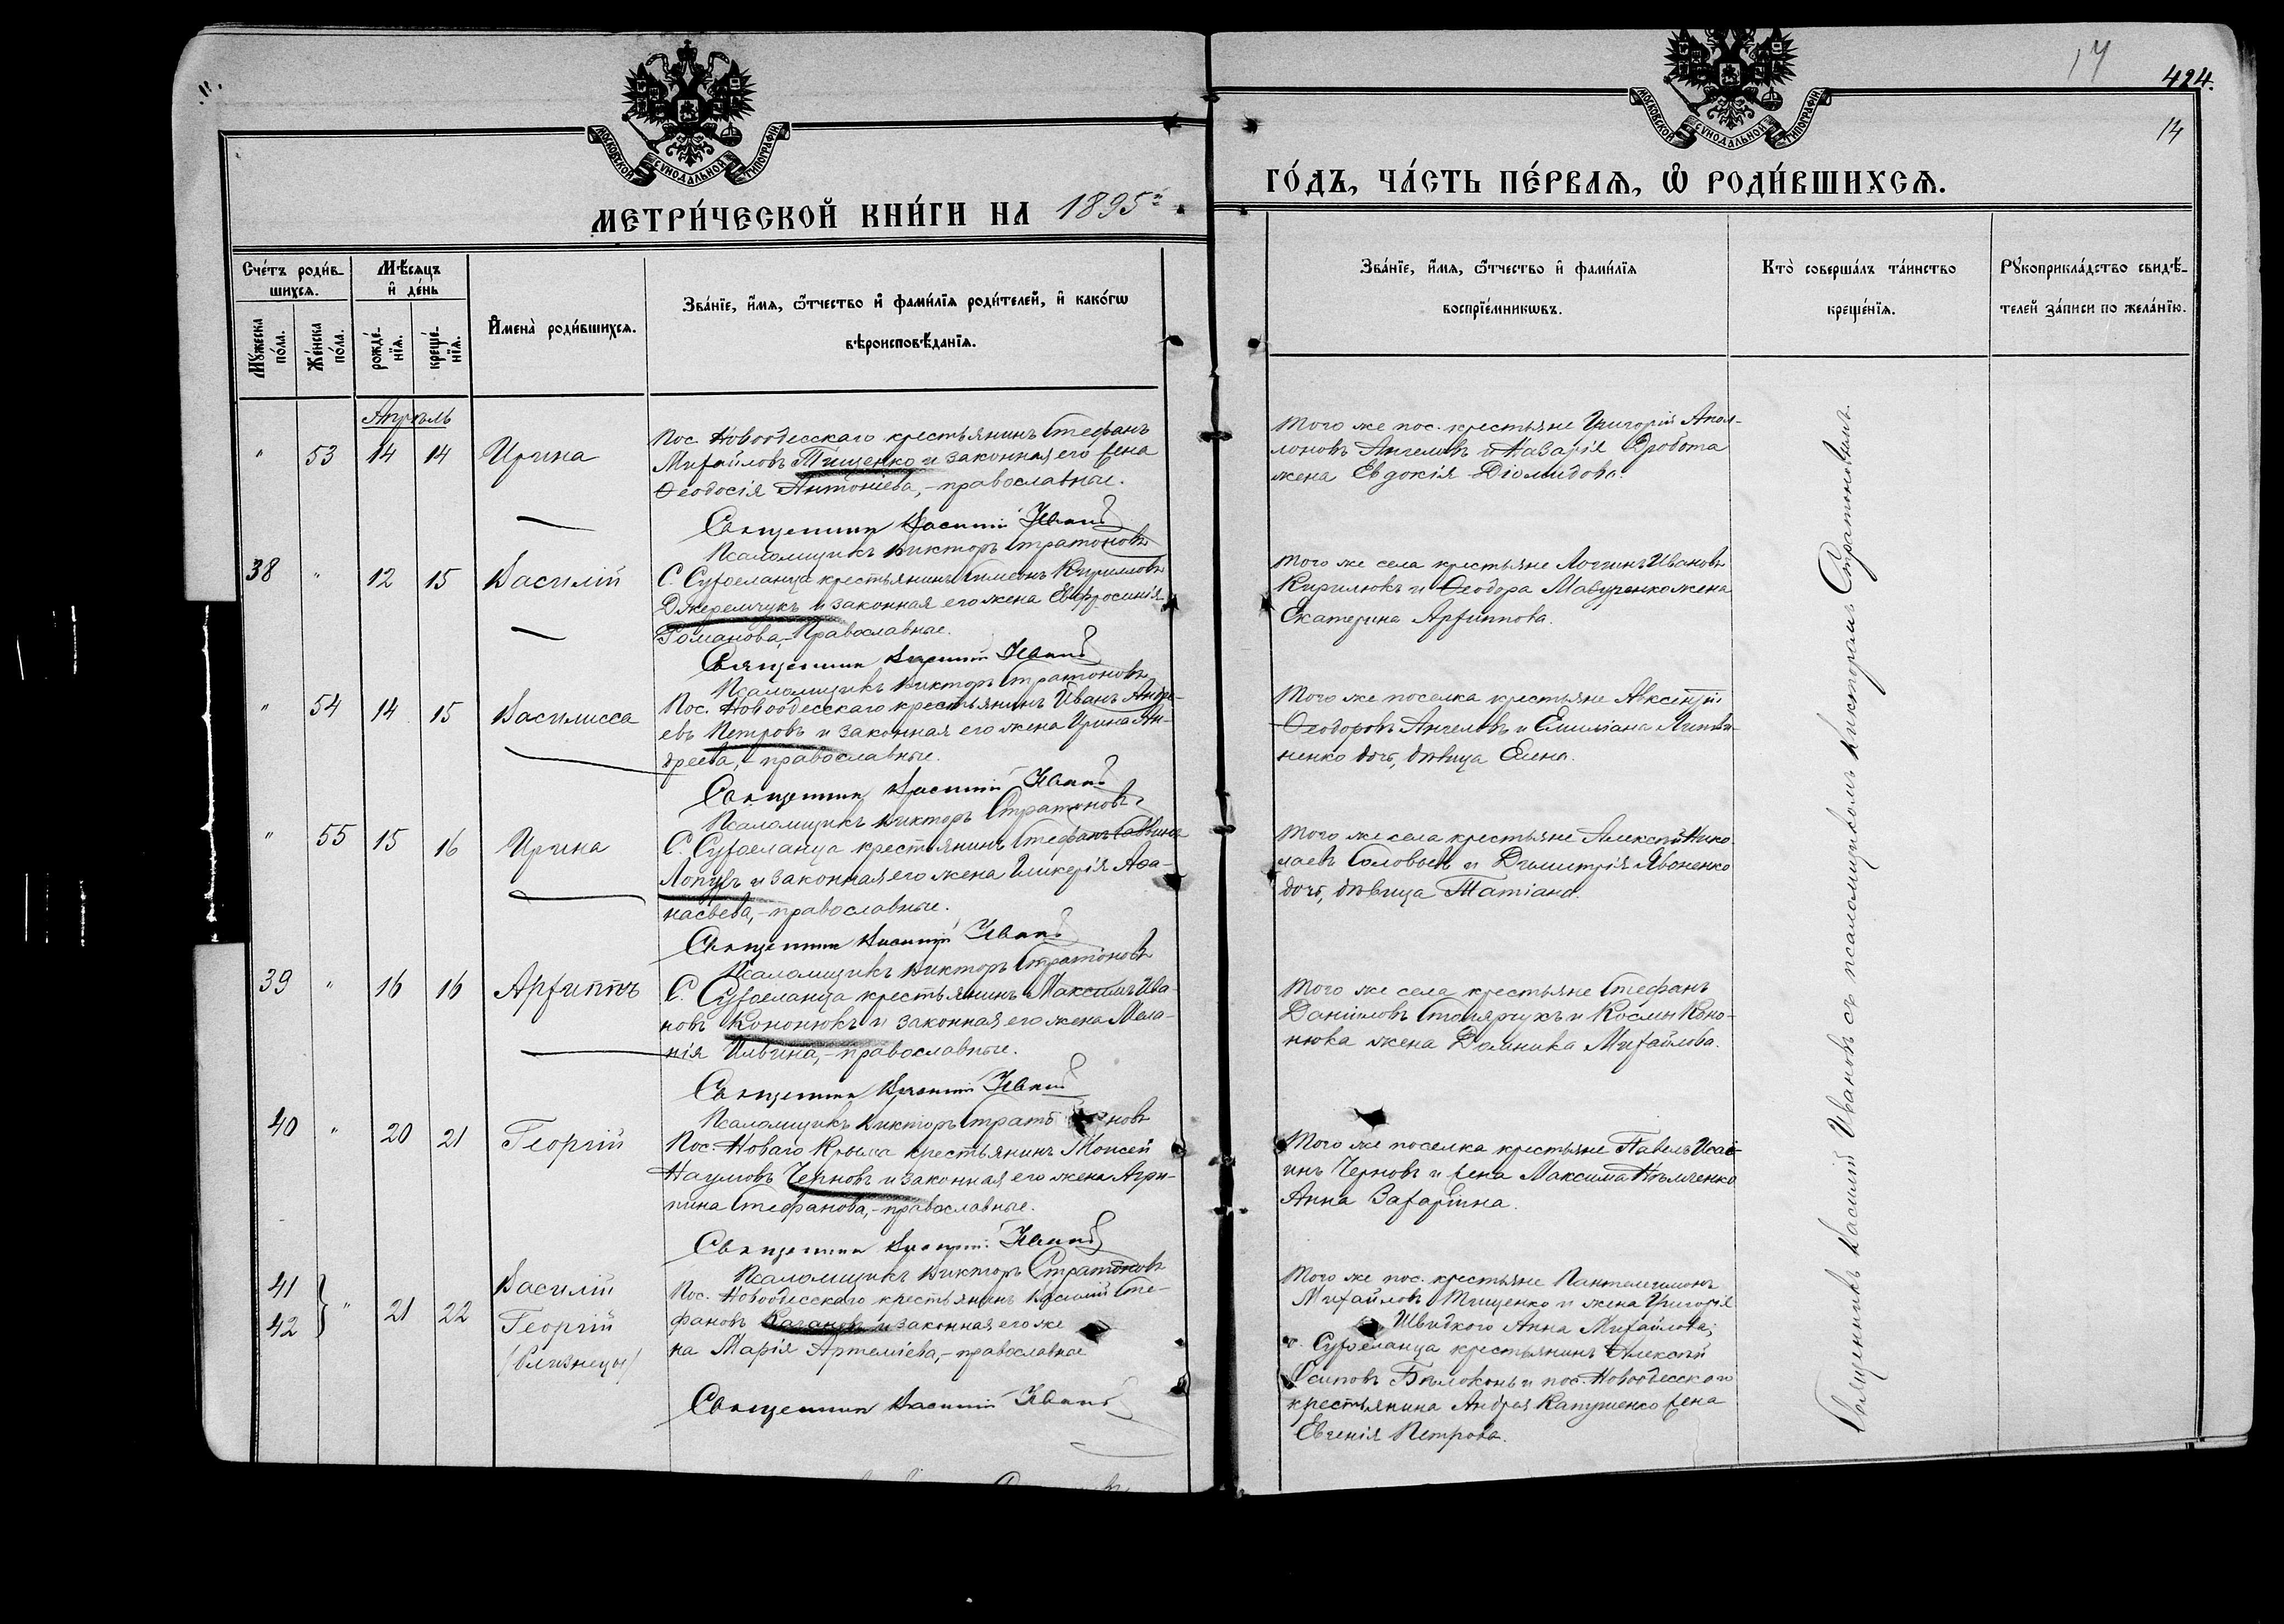 17
424.
14
МОСКОВСКОЙ СѴНОДАЛЬНОЙ ТИПОГРАФІИ
МОСКОВСКОЙ СѴНОДАЛЬНОЙ ТИПОГРАФІИ
МЕТРИ́ЧЕСКОЙ КНИ́ГИ НА 1895й
ГО́ДЪ, ЧА́СТЬ ПЕ́РВАѦ, Ѽ РОДИ́ВШИХСѦ.
Сче́тъ роди́в-
шихсѧ.
Мѣ́сѧцъ
и҆ де́нь
Мꙋ́жеска по́ла.
Же́нска по́ла.
рожде́-
нїѧ.
креще́-
нїѧ.
И҆мена̀ роди́вшихсѧ.
Зва́нїе, и҆́мѧ, ѻ҆́тчество и҆ фами́лїѧ роди́телей, и҆ како́гѡ
вѣроисповѣ́данїѧ.
Зва́нїе, и҆́мѧ, ѻ҆́тчество и҆ фами́лїѧ
воспрїе́мникѡвъ.
Кто̀ соверша́лъ та́инство
креще́нїѧ.
Рꙋкоприкла́дство свидѣ́-
телей за́писи по жела́нїю.
Апрѣль
" 53 14 14 Ирина
Пос. Новоодесскаго крестьянинъ Стефанъ
Михайловъ Тищенко и законная его жена
Ѳеодосія Антоніева,- православные.
Священникъ Василій Ивановъ
Псаломщикъ Викторъ Стратоновъ
Того же пос. крестьяне Григорій Апол-
лоновъ Ангеловъ и Назарія Дробота
жена Евдокія Діомидова.
38 " 12 15 Василій
С. Сухоеланца крестьянинъ Симеонъ Кириловъ
Джеремчукъ и законная его жена Евфросинія
Романова,- Православные.
Священникъ Василій Ивановъ
Псаломщикъ Викторъ Стратоновъ
Того же села крестьяне Логгинъ Ивановъ
Кирилюкъ и Ѳеодора Мазуренко жена
Екатерина Архиппова.
" 54 14 15 Василисса
Пос. Новоодесскаго крестьянинъ Иванъ Андре-
евъ Петровъ и законная его жена Ирина Ан-
дреева,- православные.
Священникъ Василій Ивановъ
Псаломщикъ Викторъ Стратоновъ
Того же поселка крестьяне Авксентій
Ѳеодоровъ Ангеловъ и Емиліана Литви-
ненко дочь, дѣвица Елена.
" 55 15 16 Ирина
С. Сухоеланца крестьянинъ Стефанъ Саввинъ
Лопухъ и законная его жена Гликерія Аѳа-
насьева,- православные.
Священникъ Василій Ивановъ
Псаломщикъ Викторъ Стратоновъ
Того же села крестьяне Алексѣй Нико-
лаевъ Соловьевъ и Димитрія Явоненко
дочь, дѣвица Татіана.
39 " 16 16 Архиппъ
С. Сухоеланца крестьянинъ Максимъ Ива-
новъ Кононюкъ и законная его жена Мела-
нія Ильина,- православные.
Священникъ Василій Ивановъ
Псаломщикъ Викторъ Стратоновъ
Того же села крестьяне Стефанъ
Даниловъ Столярчукъ и Космы Коно-
нюка жена Домника Михайлова.
40 " 20 21 Георгій
Пос. Новаго Крыма крестьянинъ Моисей
Наумовъ Черновъ и законная его жена Агри-
пина Стефанова,- православные.
Священникъ Василій Ивановъ
Псаломщикъ Викторъ Стратоновъ
Того же поселка крестьяне Павелъ Исаі-
инъ Черновъ и жена Максима Нѣмченко
Анна Захаріина.
41
42 } " 21 22
Василій
Георгій
(близнецы)
Пос. Новоодесскаго крестьянинъ Василій Сте-
фановъ Качановъ и законная его же
на Марія Артеміева,- православные
Священникъ Василій Ивановъ
Того же пос. крестьяне Пантелеимонъ
Михайловъ Тищенко и жена Григорія
Швидкого Анна Михайлова;
с. Сухоеланца крестьянинъ Алексѣй
Осиповъ Бѣлоконь и пос. Новоодесскаго
крестьянина Андрея Капушенко жена
Евгенія Петрова.
Священникъ Василій Ивановъ съ псаломщикомъ Викторомъ Стратоновымъ.